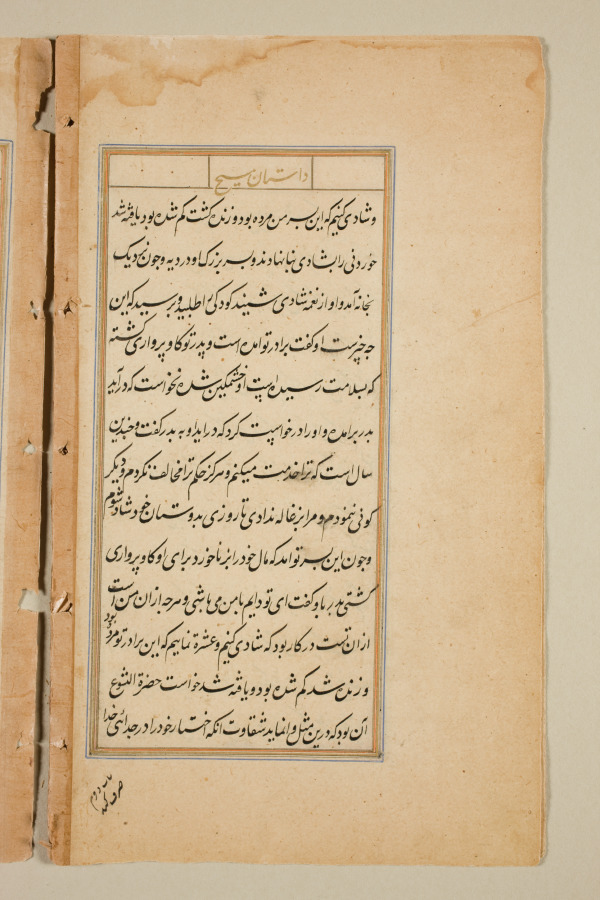 داستان مسیح
و شادی کنیم که این پسر من مرده بود و زنده کشت کم شده بود یافته شد
خوردنی را بشادی بنا نهادند و پسر بزرک او در دیه و چون نزدیک
بخانه آمد و اواز نغمه شادی شنیند کودکی را طلبید و پرسید که این
چه چیزست او کفت برادر تو امده است و پدر تو کاو پرواری کشته
که بسلامت رسیده است او خشمکین شده نخواست که درآید
پدر برامده و او را درخواست کرد که دراید او به پدر کفت که چندین
سال است که ترا خدمت میکنم و هرکز حکم ترا مخالف نکردم و دیکر
نمودم و مرا بزغاله ندادی تا روزی بدوستان خود شاد شوم
و چون این پسر تو امد که مال خود را بزنا خورد برای او کاو پرواری
کشتی پدر باو کفت ای تو دایم با من می باشی و هرچه از ان من است
از ان تست در کار بود که شادی کنیم و عشرة نماییم که این برادر تو مرده بود
و زنده شد کم شده بود و یافته شد خواست حضرة
آن بود که درین مثل وانماید شقاوت انکه اختیار خود را در جدائی خدا
صرف کند